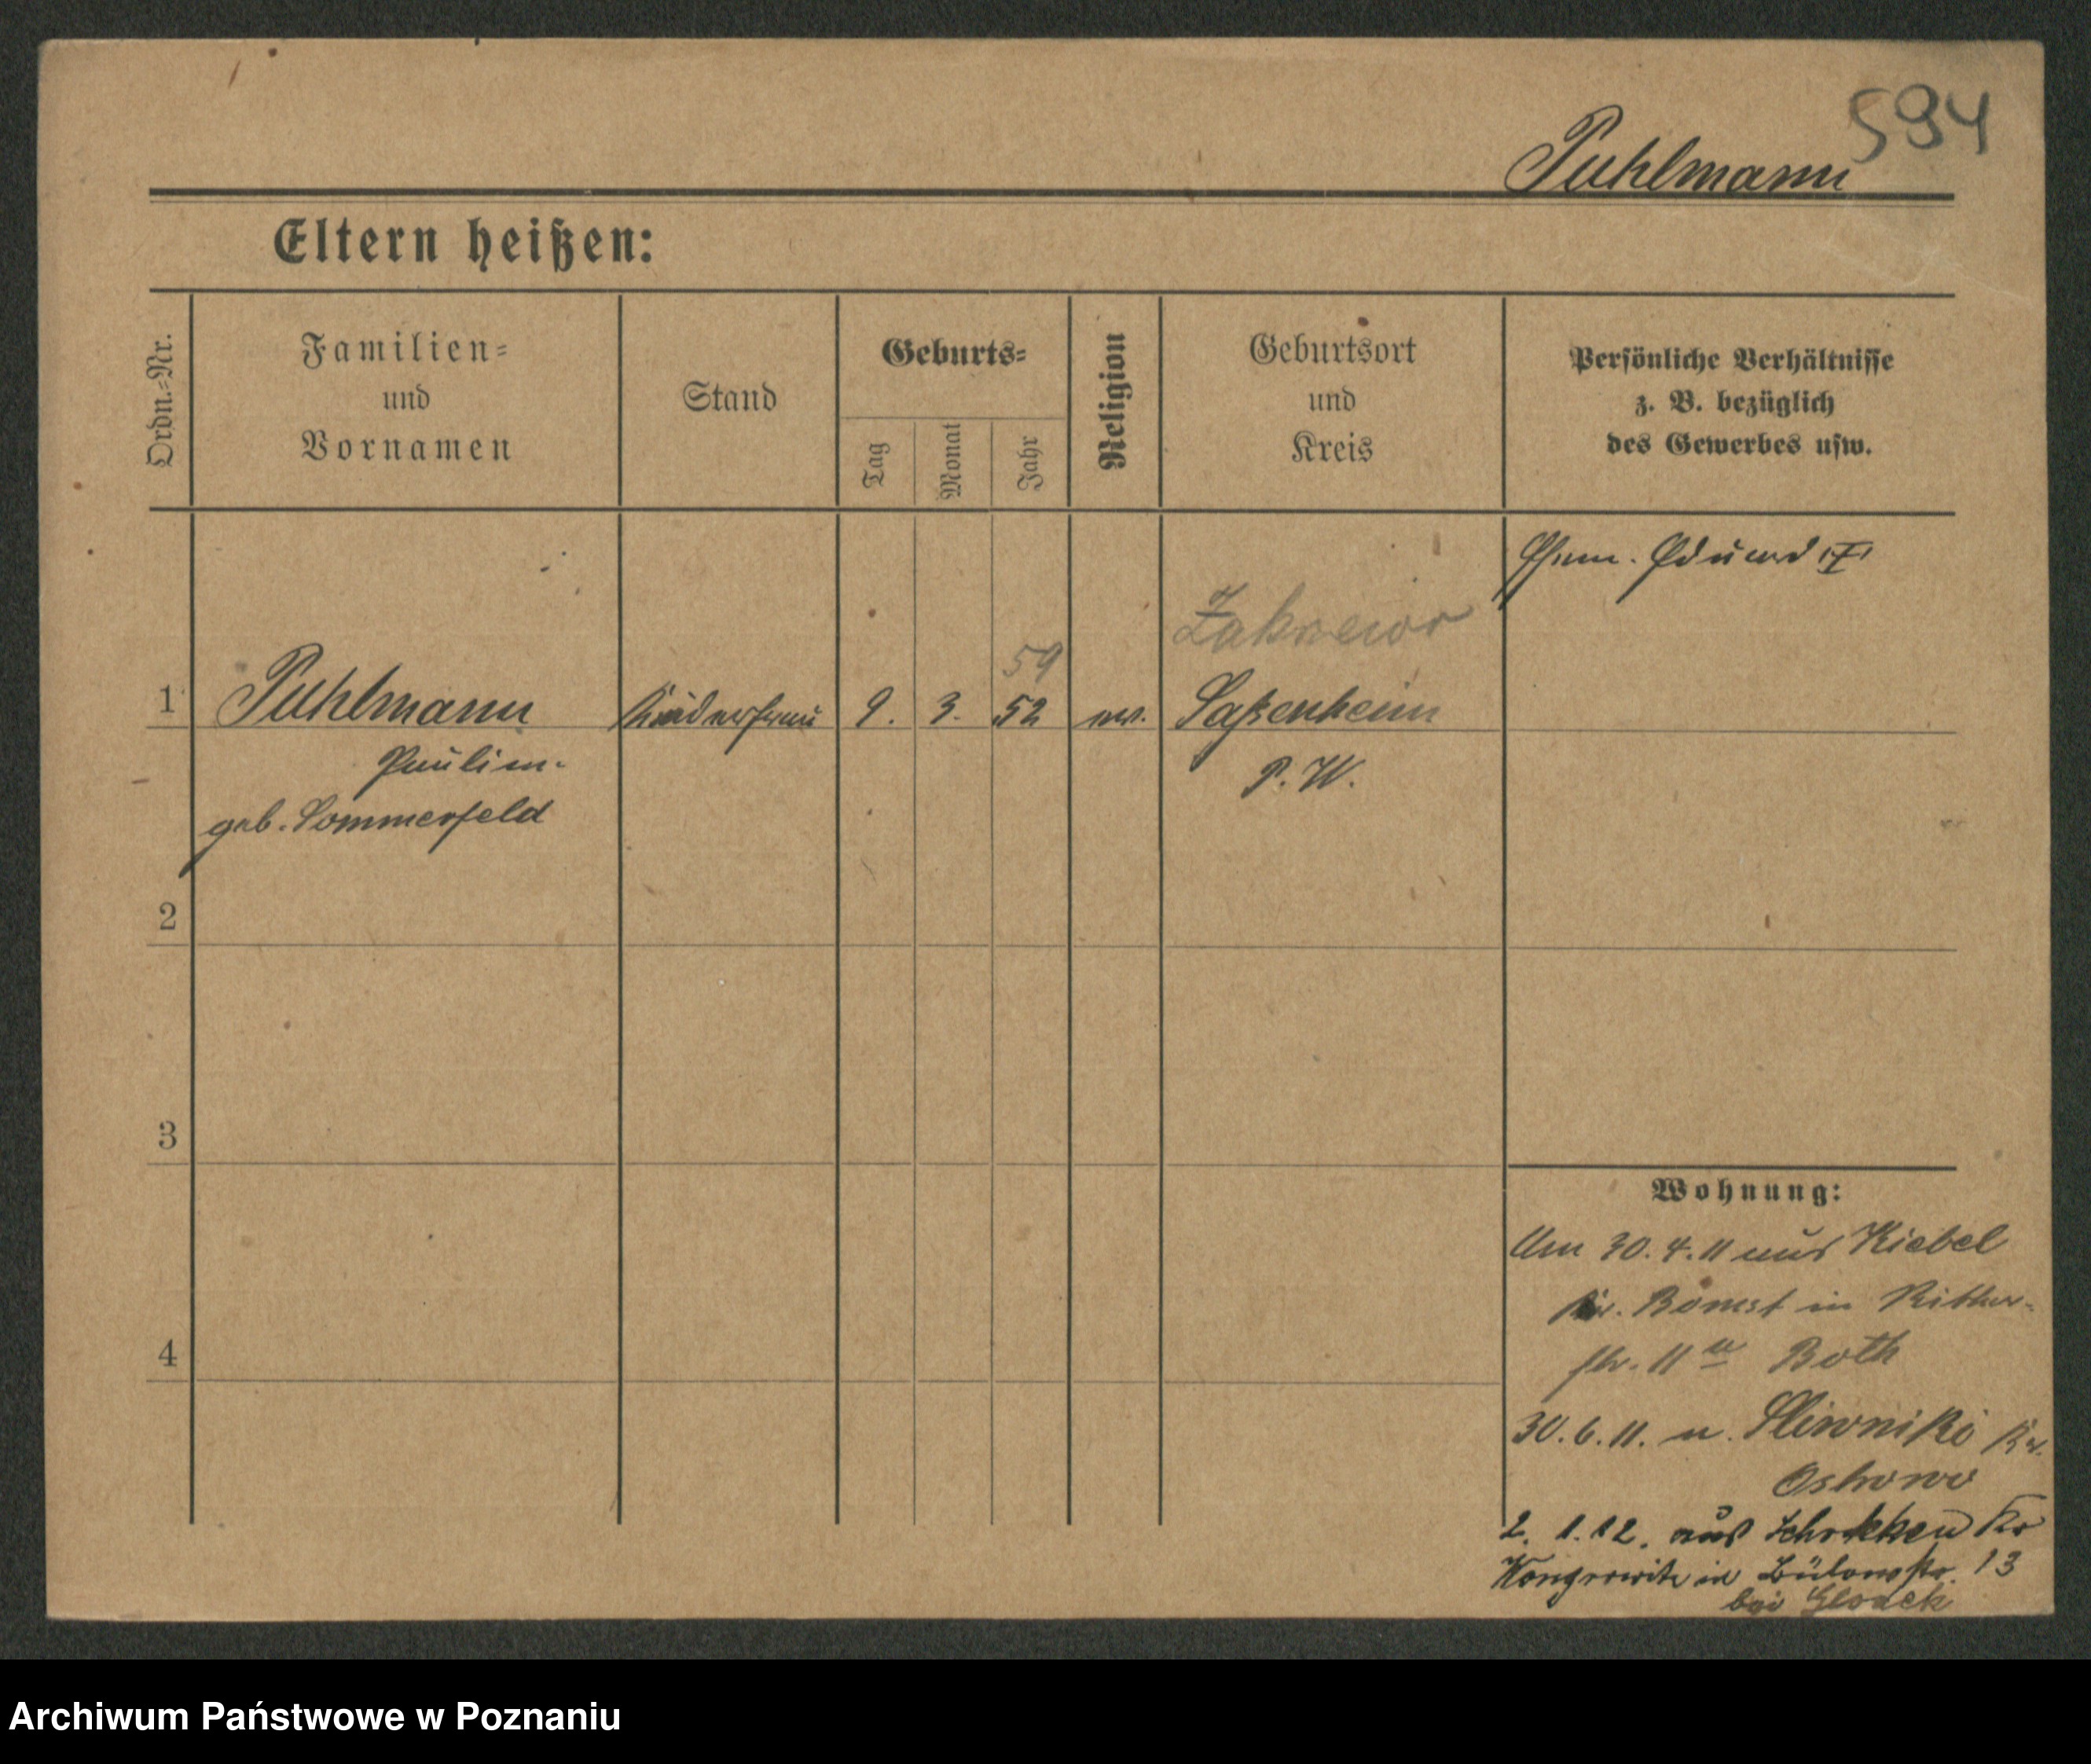 594
Puhlmann
Eltern heißen:
Ordn.-Nr.
Familien-
und
Vornamen
Stand
Geburts-
Tag
Monat
Jahr
Religion
Geburtsort
und
Kreis
Persönliche Verhältnisse
z. B. bezüglich
des Gewerbes usw.
Ehem. Eduard
59
1 Puhlmann Kinderfrau 9. 3. 52 ev. Saßenheim
Pauline
P. W.
geb. Sommerfeld
2
3
4
Wohnung:
Am 30.4.11 aus Kiebel
Kr. Bomst in Ritter-
str. 11 Both
30.6.11. n. Sliwniki Kr.
Ostrowo
2. 1. 12. aus Schokken Kr
Wongrowitz in Bülowstr. 13
bei
Archiwum Państwowe w Poznaniu